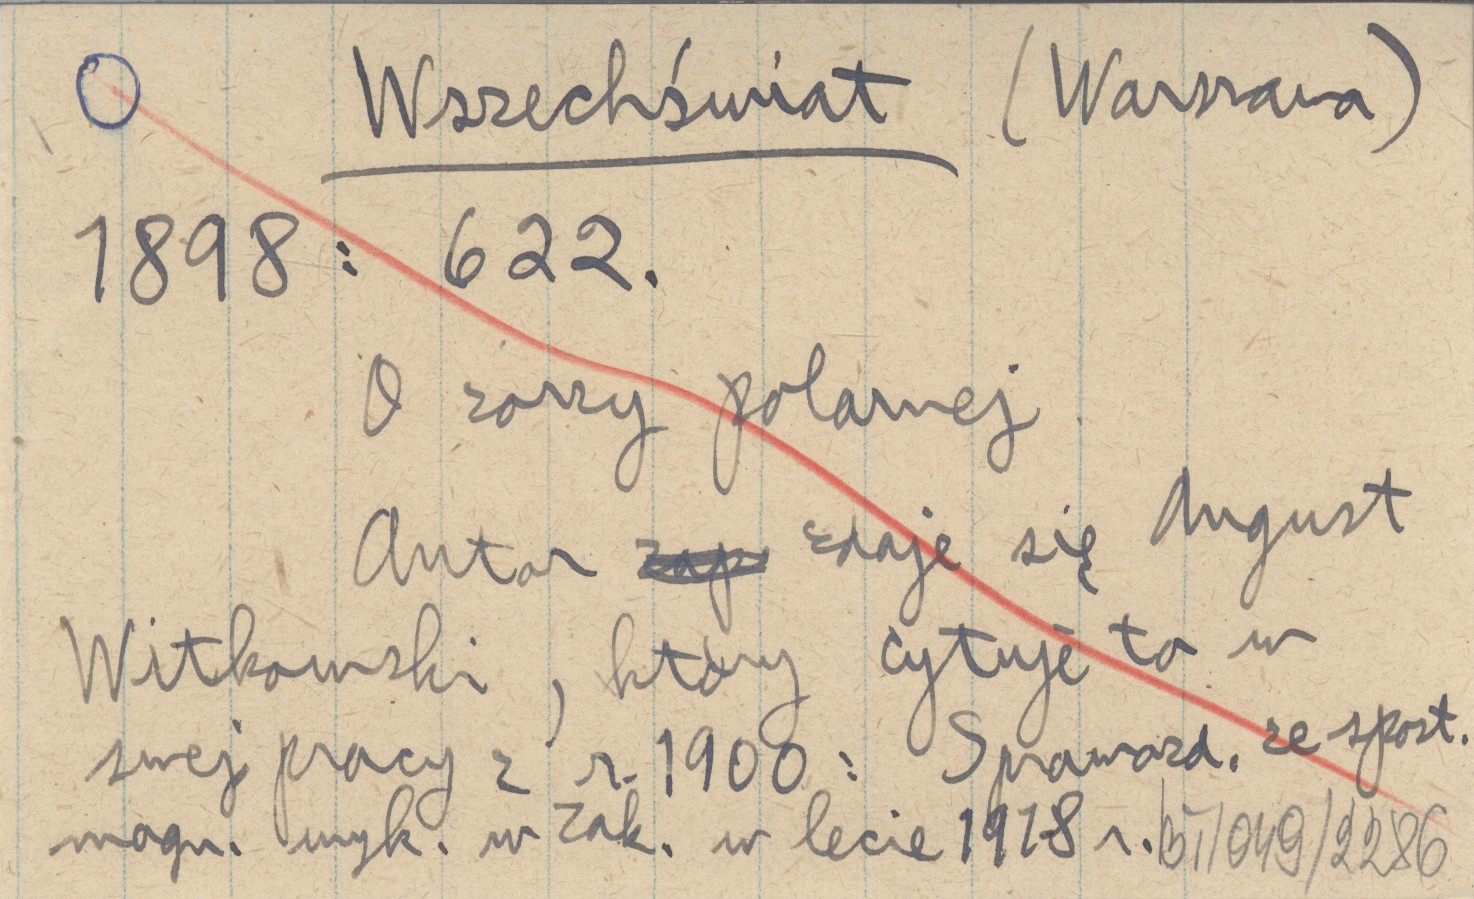 Wszechświat (Warszawa)
1898: 622.
O zorzy polarnej.
Autor zdaje się August
Witkowski, który cytuje to w
swej pracy z r. 1900: Sprawozd. ze spost.
magn. wyk. w Zak. w lecie 1918 r. 049/2286